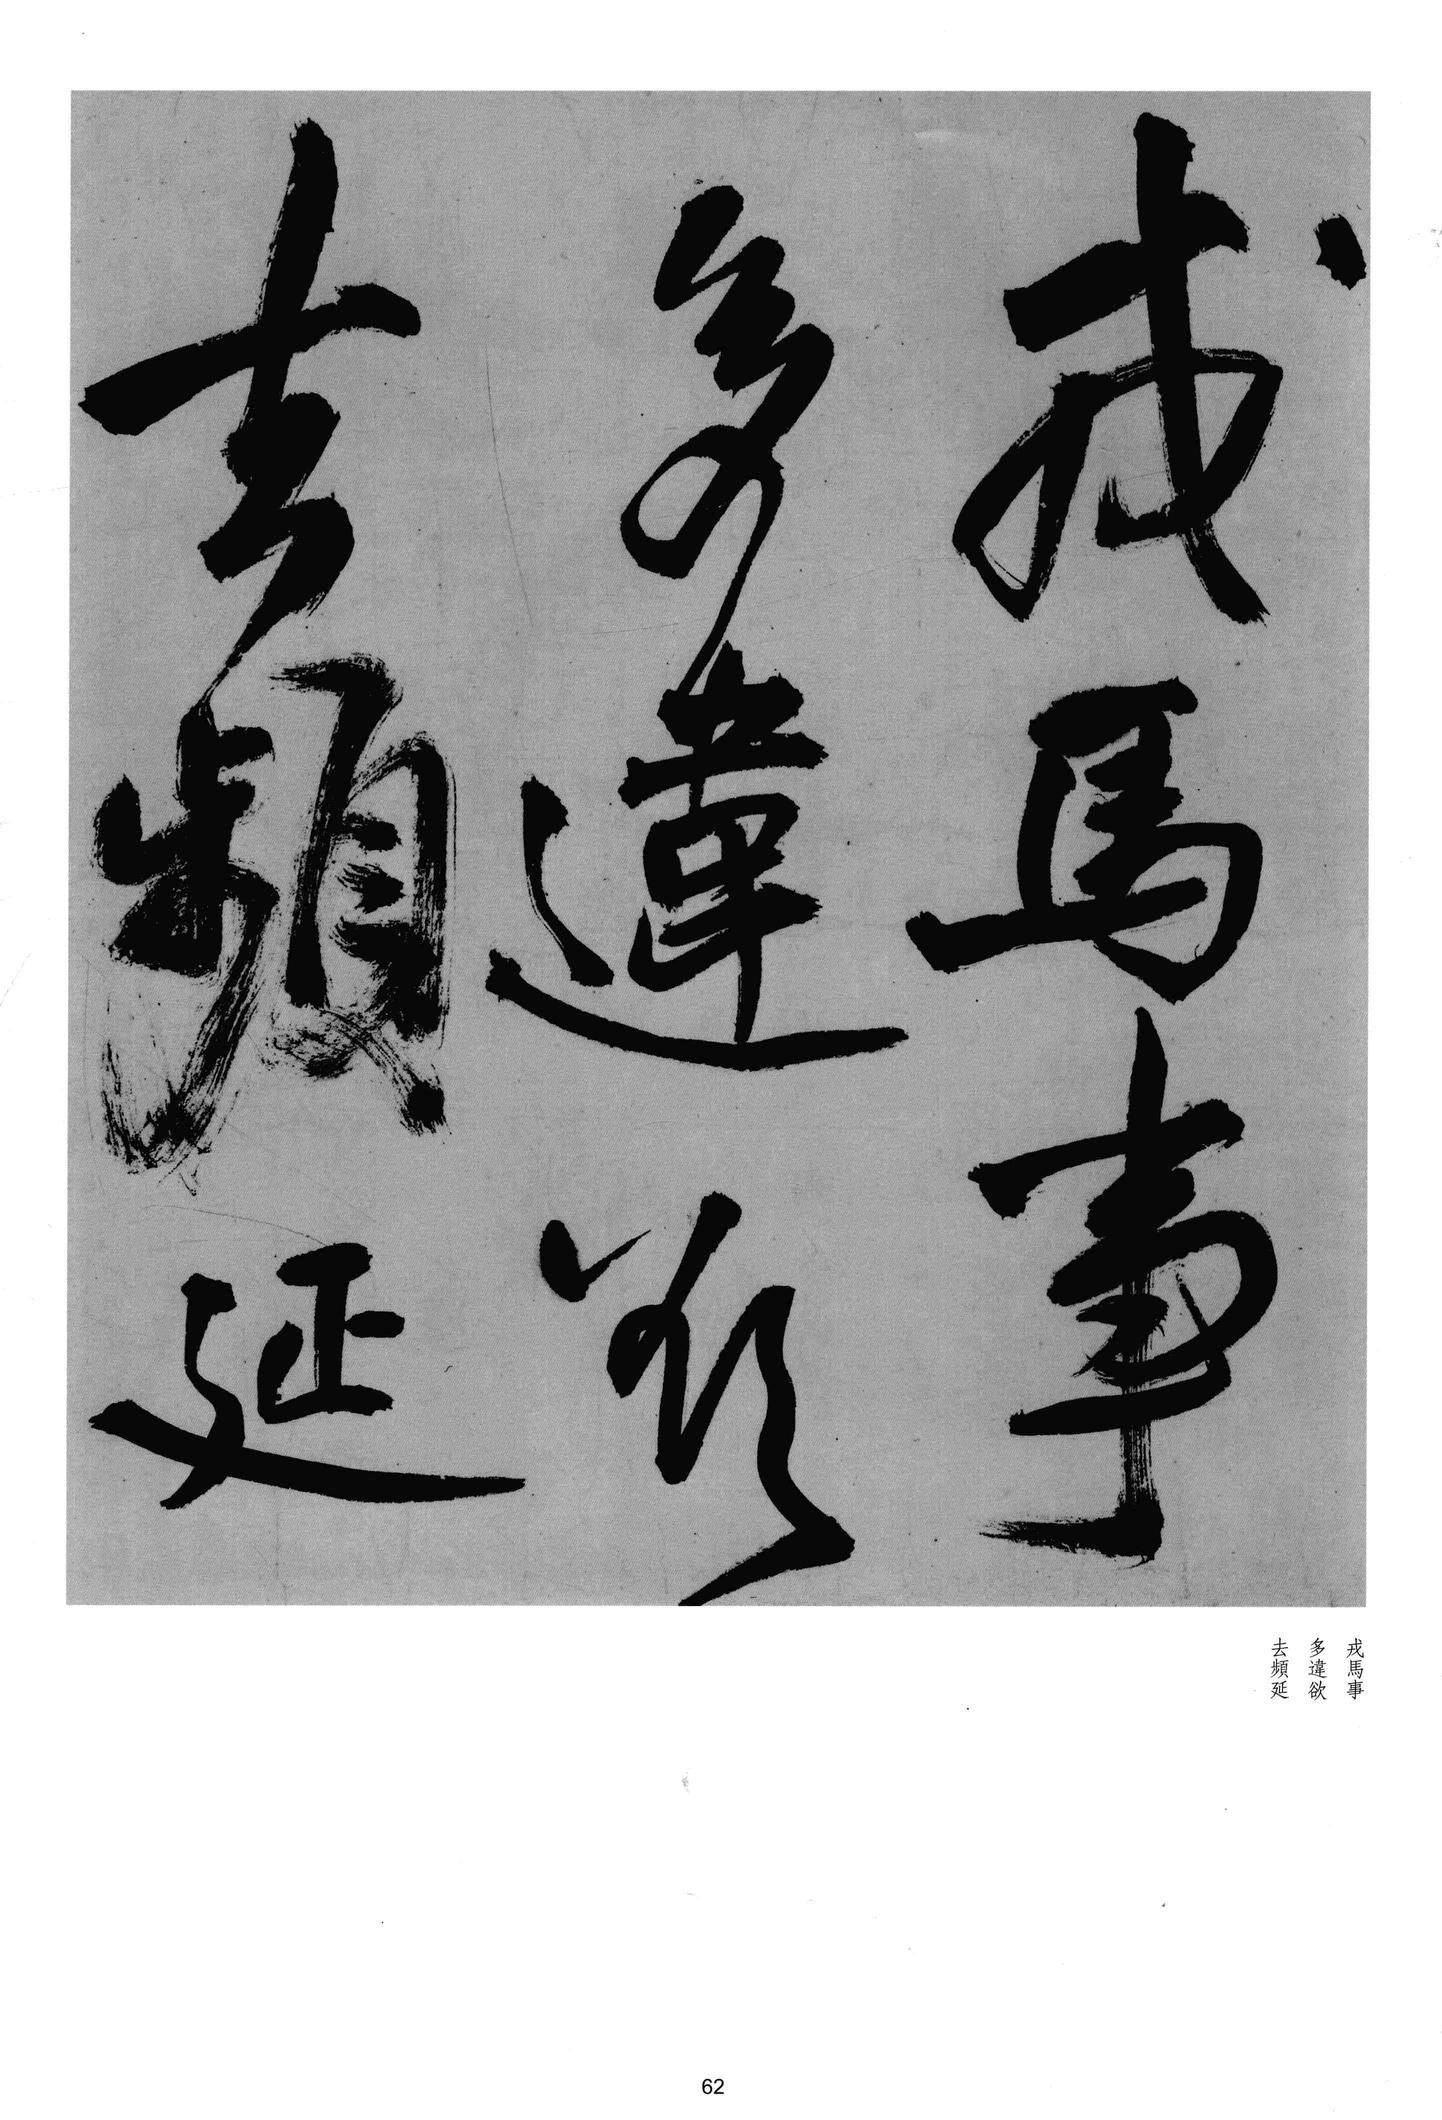 戎馬事
多違欲
去頻延
戎馬事
多違欲
去頻延
62